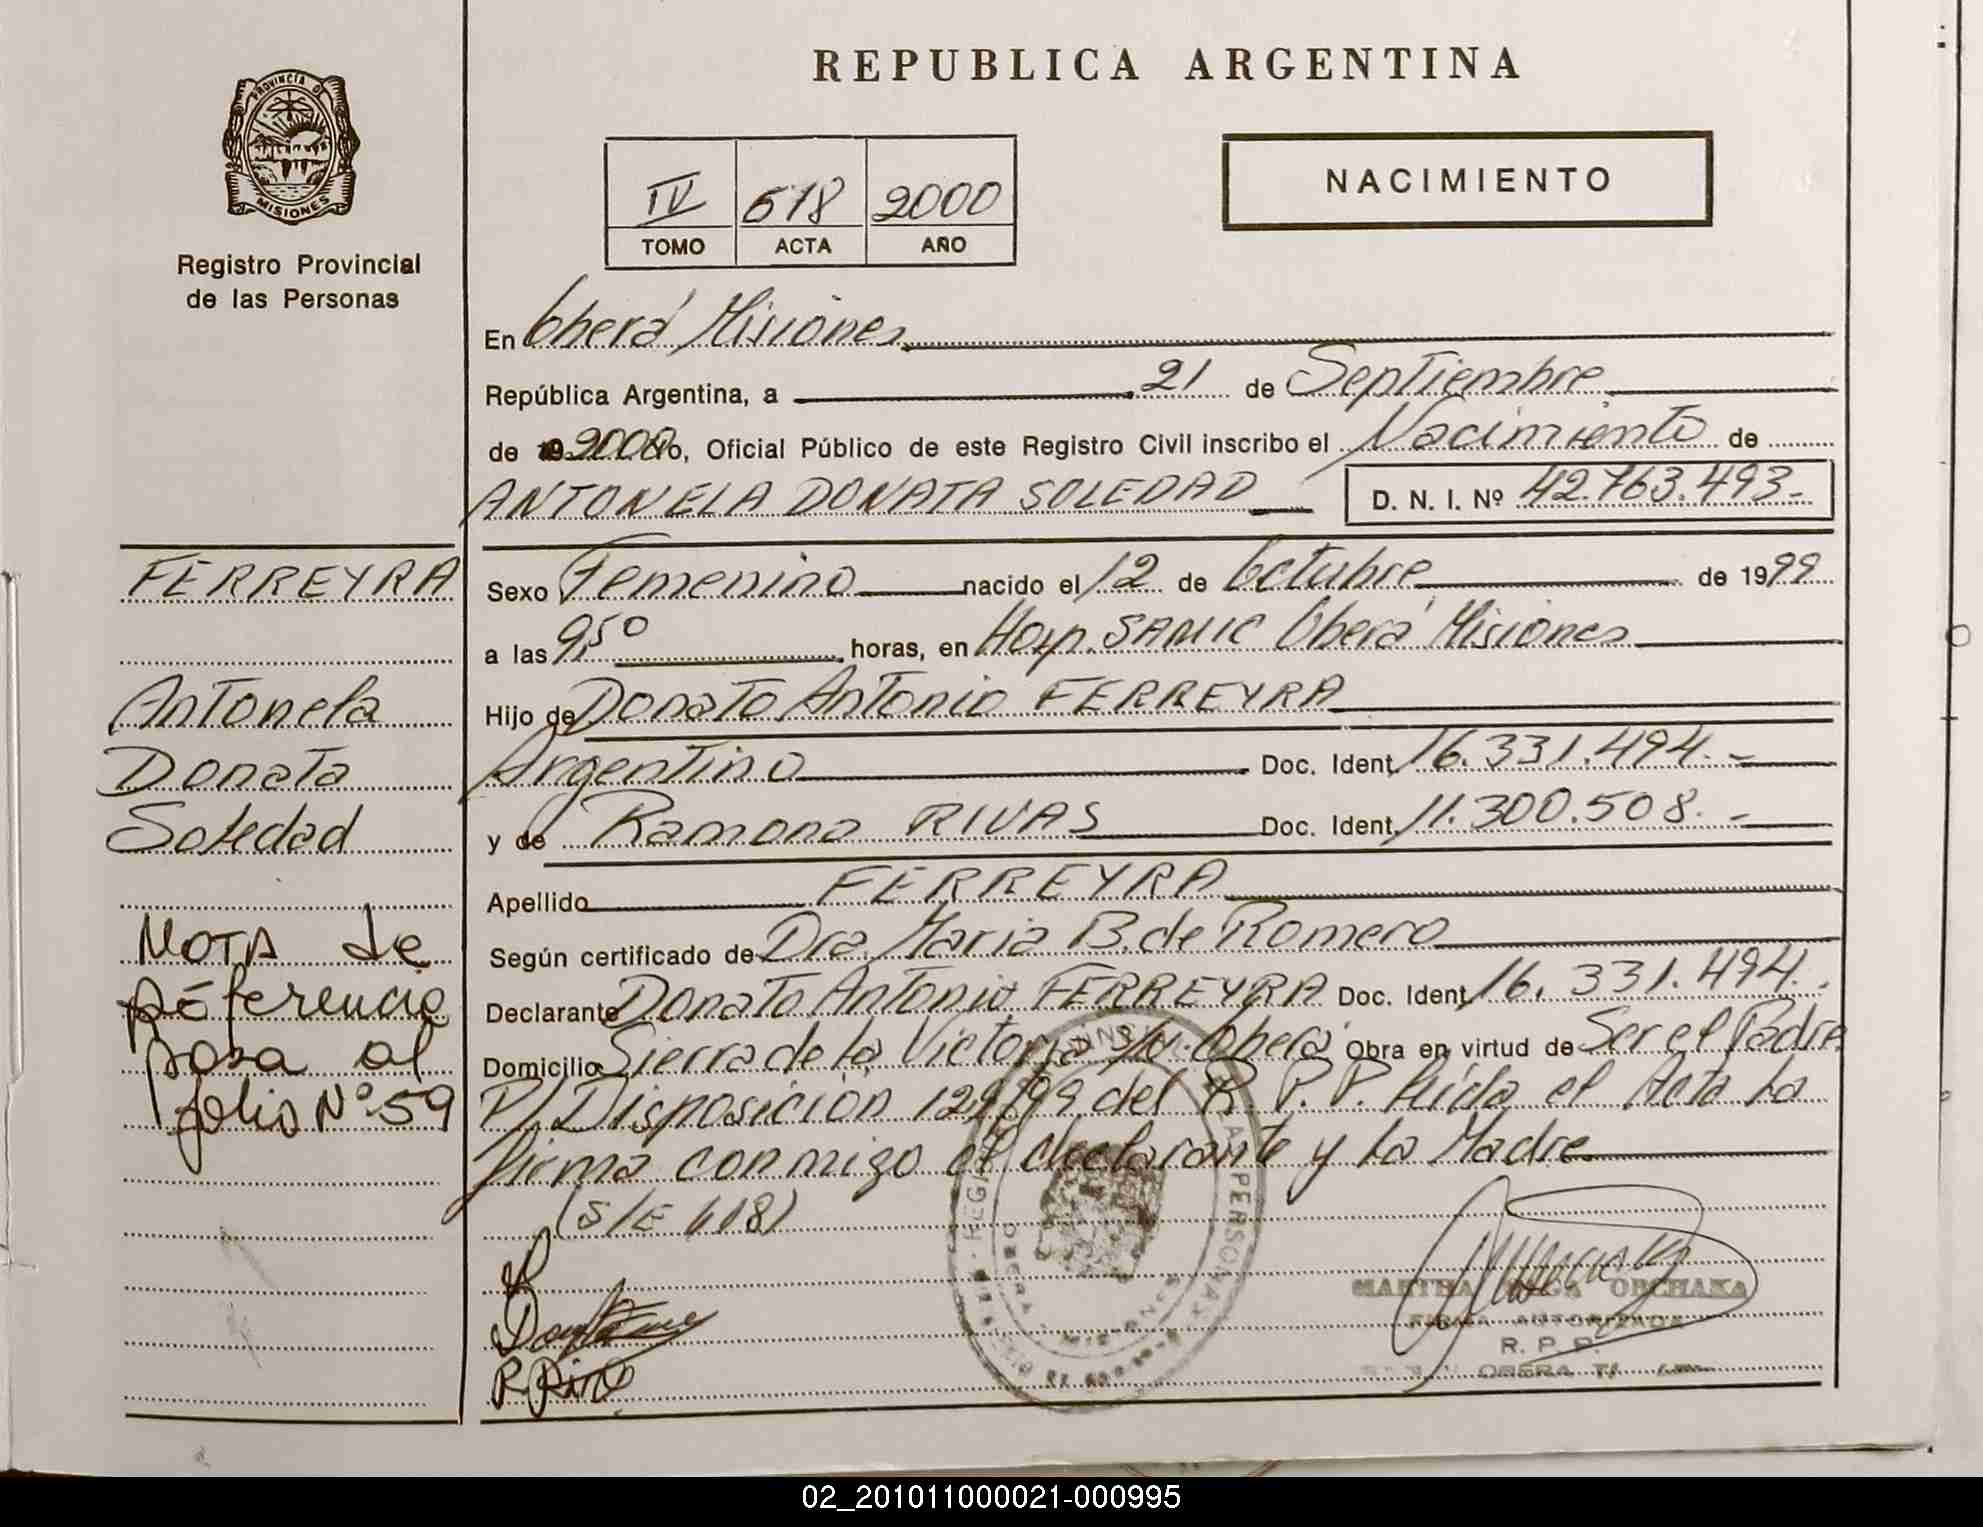 REPUBLICA ARGENTINA
PROVINCIA DE
MISIONES
Registro Provincial
de las Personas
IV 618 2000
TOMO ACTA AÑO
NACIMIENTO
En Oberá Misiones
República Argentina, a 21 de Septiembre
de 2000 , Oficial Público de este Registro Civil inscribo el Nacimiento de
ANTONELA DONATA SOLEDAD D. N. I. Nº 42.763.493.-
FERREYRA
Antonela
Donata
Soledad
NOTA de
referencia
pasa al
folio Nº 59
Sexo Femenino nacido el 12 de Octubre de 1999
a las 9,50 horas, en Hosp. SAMIC Oberá Misiones
Hijo de Donato Antonio FERREYRA
Argentino Doc. Ident. 16.331.494.-
y de Ramona RIVAS Doc. Ident. 11.300.508.-
Apellido FERREYRA
Según certificado de Dra. Maria B. de Romero
Declarante Donato Antonio FERREYRA Doc. Ident. 16.331.494.
Domicilio Sierra de la Victoria S/N. Oberá Obra en virtud de Ser el Padre
P/ Disposición 129/99 del R. P. P. Leída el Acta la
firma conmigo el declarante y la Madre
(S/E 618)
MARTHA OLGA
FIRMA AUTORIZADA
R. P. P.
OBERA
02_201011000021-000995